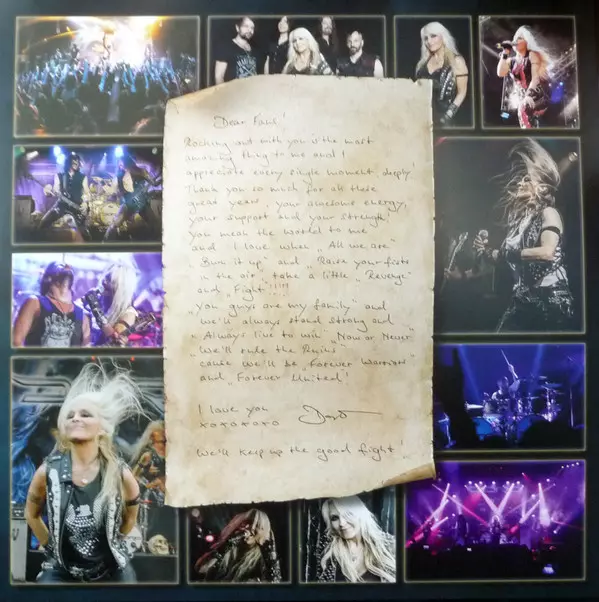 Dear Fans!
Rocking out with you is the most
amazing thing to me and I
appreciate every single moment deeply!
Thank you so much for all these
great years, your awesome energy,
your support and your strength!
You mean the world to me
and I love when „All we are"
„Burn it up" and „Raise your fists
in the air", take a little „Revenge"
and „Fight"!!!!!
„You guys are my family" and
we'll always stand strong and
„Always live to win" „Now or Never"
„We'll ride the Ruins"
cause we'll be „Forever Warriors"
and „Forever United!
I love you
xoxoxoxo Doro
We'll keep up the good fight!